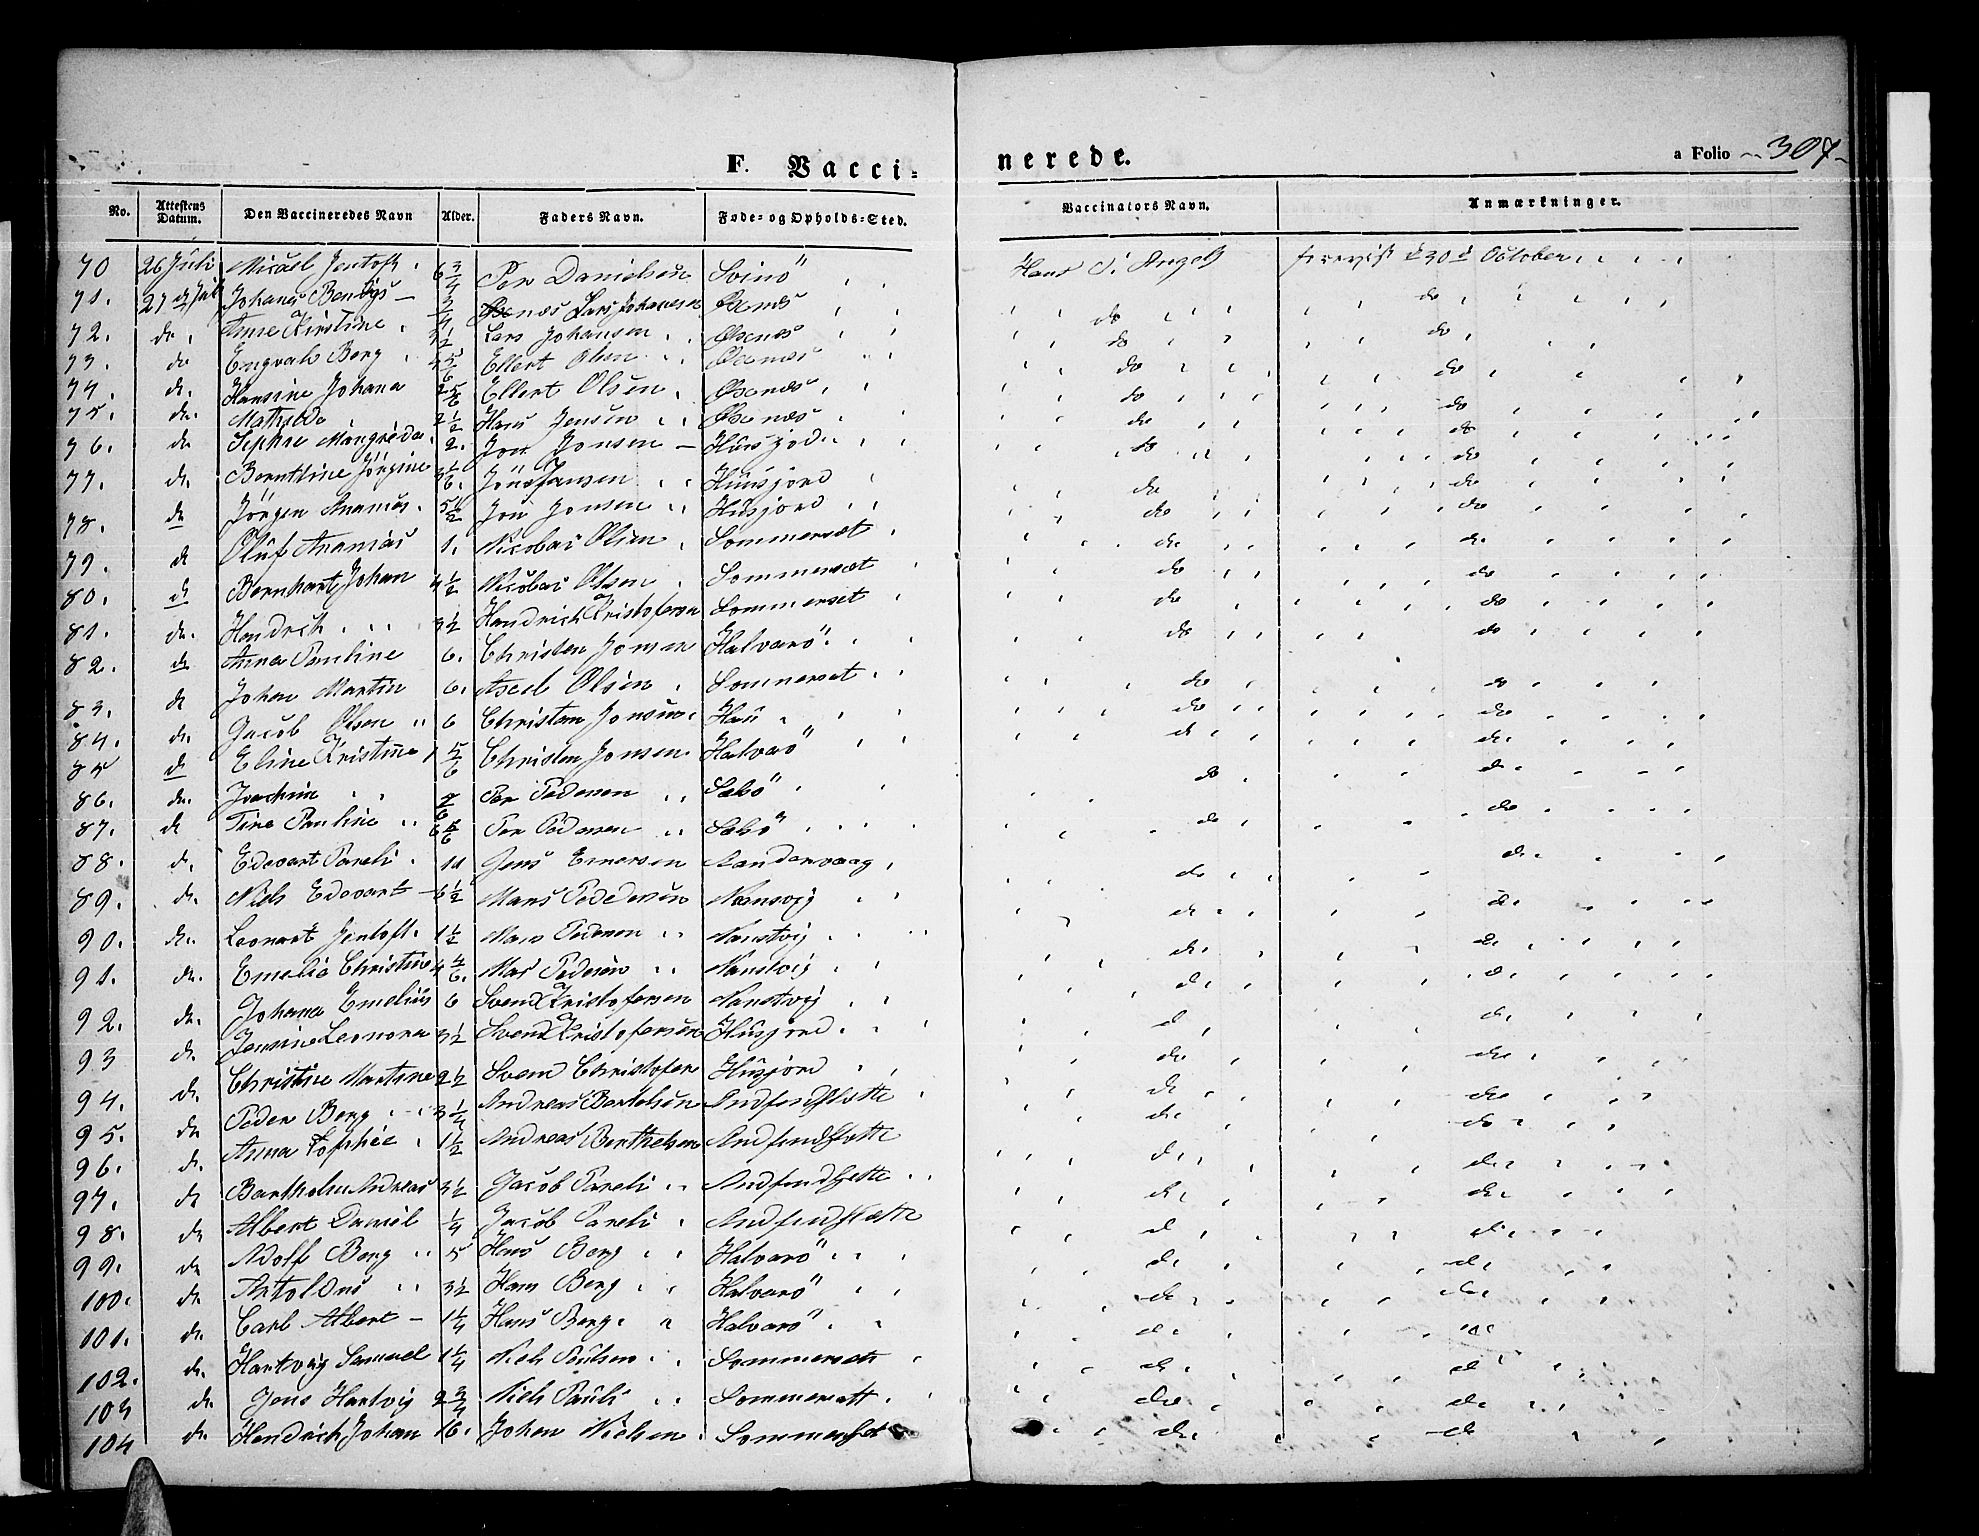 F. Vacci= nerede.
a Folio 307
No. Attestens Datum. Den Vaccineredes Navn Alder. Faders Navn. Føde= og Opholds=Sted. Vaccinators Navn. Anmærkninger.
70 26 Juli Micael Jentoft 6 3/4 Per Danielsen Svinö Hans S. Angell October
71. 27 Johanes 3/4 Lars Johansen Öxnes do do
72. do Anne Kirstine 3 1/2 Lars Johansen Öxnes do do
73. do Engvah Berg Ellert Olsen Öxnes do do
74. do. Hansine Johana 2 5/6 Ellert Olsen Öxnes do do
75. do. Mathilde 2 1/2 Hans Jensen Öxnes do do
76. do Sephie 2. Jon Jonsen Husjord do do
77. do. Berntine Jörgine Jonsen Husjord do do
78. do Jörgen Ananias 5 1/2 Jon Jonsen Husjord do do
79. do Oluf Ananias 1. Nicolai Olsen Sommerset do do
80. do Bernhart Johan 4 1/2 Nicolai Olsen Sommerset do do
81. do. Hendrik 3 1/2 Hendrich Kristofersen Sommerset do do
82. do Anna Pauline 6. Christen Jonsen Halvarö do do
83. do Johan Martin 6. Axel Olsen Sommerset do do
84. do. Jacob Olsen 6 Christen Jonsen do do
85 do Eline Kristine 1 5/6 Christen Jonsen Halvarö do do
86. do. Joachim Per Pedersen Sæbö do do
87. do Tine Pauline 6 5/6 Per Pedersen Sæbö do do
88. do. Edevart Pareli 11 Jens Enersen Sandervaag do do
89. do. Niels Edevart 6 1/2 Mans Pedersen do do
90. do. Leonart Jentoft 1 1/2 Mans Pedersen do do
91. do. Emelie Christine 4 4/6. Pedersen do do
92. do. Johana Emelius 6 Svend Kristofersen do do
93 do. Jensine Leonora 3 1/2 Svend Kristofersen Husjord do do
94. do. Christine Martine 2 1/2 Svend Christofer Husjord do do
95. do Peder Berg 3 1/4 Andreas Bartelsen do do
96. do. Anna Sophie 1 1/2 Andreas Berthelsen do do
97. do Barthelm Andreas 3 1/2 Jacob Pareli do do
98. do Albert Daniel 1/4 Jacob Pareli do do
99. do Adolf Berg 5 Hans Berg Halvarö do do
100. do 3 1/2 Hans Berg Halvarö do do
101. do. Carl Albert 1 1/4 Hans Berg Halvarö do do
102. do. Hartvig Samuel 1 1/4 Niels Paulsen Sommerset do do
103 do Jens Hartvig 2 3/4 Niels Pauli Sommersett do do
104 do. Hendrich Johan 16. Johan Nielsen Sommerset do do